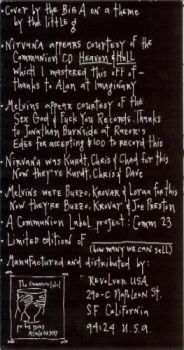 • Cover by the Big A on a theme
by the little g
• Nirvana appears courtesy of the
Communion CD Heaven & Hell
which I mastered this off of -
thanks to Alan at Imaginary
• Melvins appear courtesy of the
Sex God & Fuck You Records. Thanks
to Jonathan Burnside at Razor's
Edge for accepting $100 to record this
• Nirvana was Kurdt, Chris & Chad for this
Now they're Kurdt, Chris & Dave
• Melvins were Buzzo, Krovar & Lorax for this
Now they're Buzzo, Krovar & Joe Preston
• A Communion Label project: Comm 23
• Limited edition of
(how many we can sell)
Manufactured and distributed by:
Revolver USA
290-C Napleon St.
S.F. California
94124 U.S.A.
The Communion Label